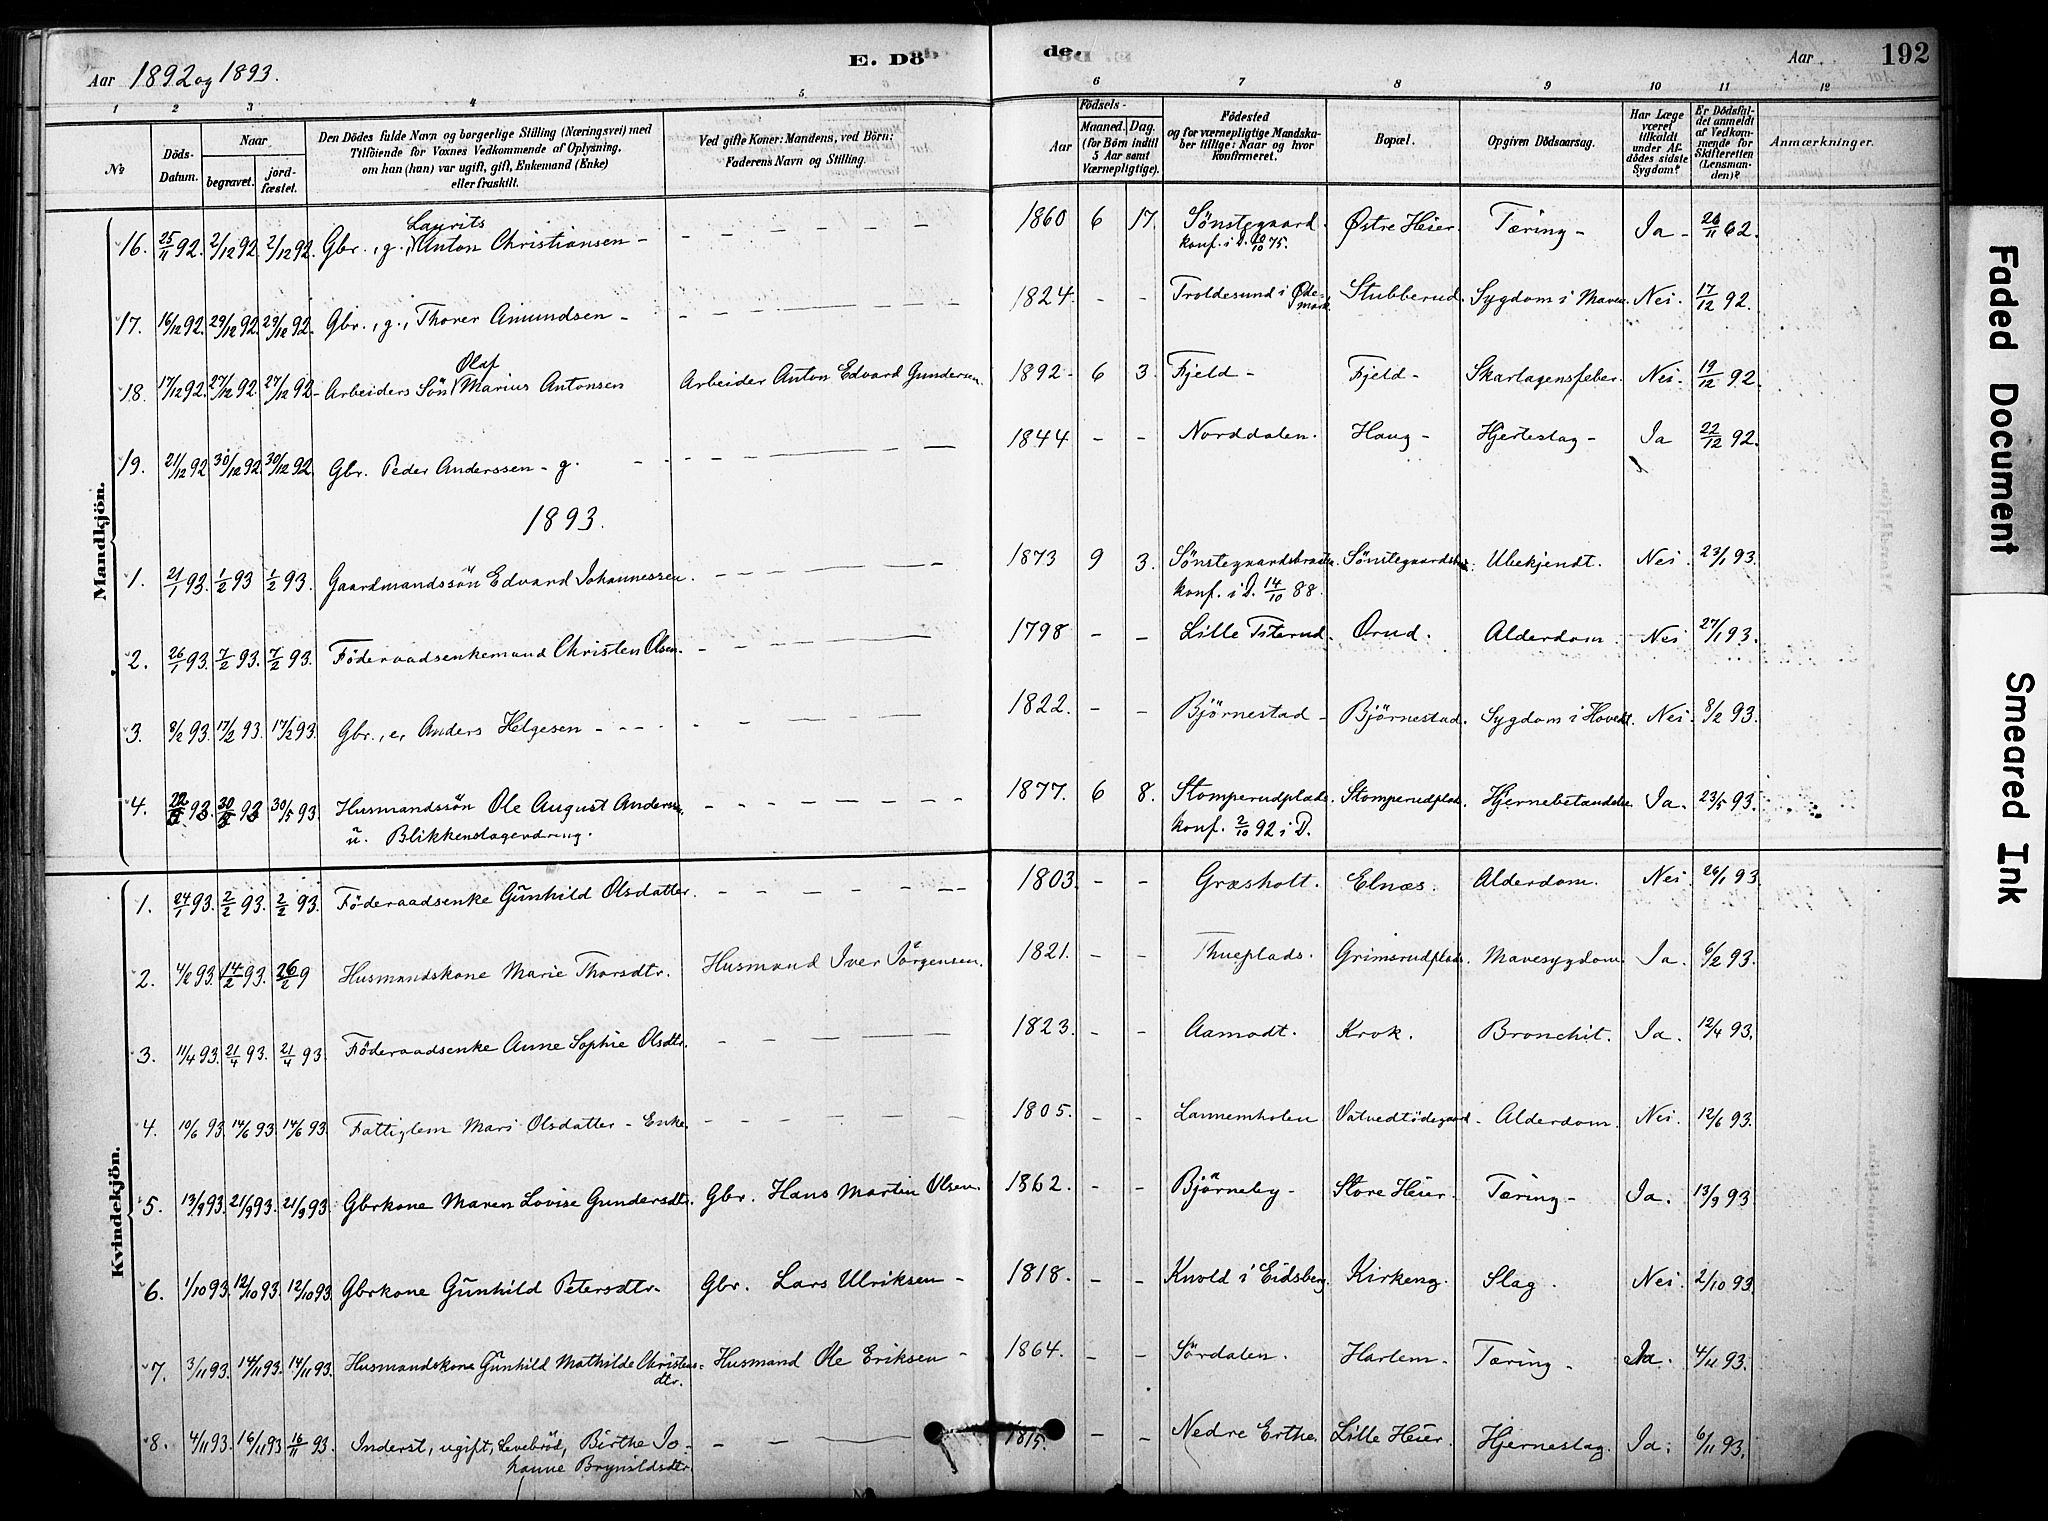 Aar 1892 og 1893.
E. Døde.
Aar
192
1 2 3 4 5 6 7 8 9 10 11 12
№
Døds-Datum.
Naar
begravet.
jordfæstet.
Den Dödes fulde Navn og borgerlige Stilling (Næringsvei) med
Tilföiende for Voxnes Vedkommende af Oplysning,
om han (hun) var ugift, gift, Enkemand (Enke)
eller fraskilt.
Ved gifte Koner: Mandens, ved Börn:
Faderens Navn og Stilling.
Födsels-
Aar
Maaned. Dag.
(for Börn indtil
5 Aar samt
Værnepligtige).
Födested
og for værnepligtige Mandskaber
tillige: Naar og hvor
konfirmeret.
Bopæl.
Opgiven Dödsaarsag.
Har Læge
været
tilkaldt
under Afdödes
sidste
Sygdom?
Er Dödsfaldet
anmeldt
af Vedkommende
for
Skifteretten
(Lensmanden)?
Anmærkninger.
Mandkjön.
16. 25/11 92. 2/12 92. 2/12 92. Gbr., g., Laurits Anton Christiansen - 1860 6 17. Sönstegaard konf. i D. 10/10 75. Østre Heier. Tæring - Ja - 26/11 62.
17. 16/12 92. 29/12 92. 29/12 92. Gbr., g., Thorer Amundsen - 1824. - - Troldesund i Ødemark. Stubberud. Sygdom i Maven. Nei. 17/12 92.
18. 17/12 92. 27/12 92. 27/12 92. Arbeiders Sön Olaf Marius Antonsen Arbeider Anton Edvard Gundersen. 1892 - 6 3. Fjeld - Fjeld - Skarlagensfeber. Nei - 19/12 92.
19. 21/12 92. 30/12 92. 30/12 92. Gbr. Peder Anderssen - g. 1844 - - Norddalen. Haug - Hjerteslag - Ja 22/12 92.
1893.
1. 21/1 93. 1/2 93 1/2 93. Gaardmandssön Edvard Johannessen. 1873 9 3. Sönstegaardsbraaten. konf. i D. 14/10 88. Ubekjendt. Nei. 23/1 93.
2. 26/1 93. 7/2 93. 7/2 93. Föderaadsenkemand Christen Olsen. 1798 - - Lille Tisterud. Ørud. Alderdom. Nei 27/1 93.
3. 8/2 93. 17/2 93. 17/2 93. Gbr., e, Anders Helgesen - 1822. - - Björnestad - Björnestad. Sygdom i Hovedt. Nei. 8/2 93.
4. 22/5 93. 30/5 93 30/5 93. Husmandssön Ole August Andersen 1877. 6 8. Stomperudplads. Stomperudplads. Hjernebetændelse Ja. 23/5 93.
u. Blikkenslagerdreng. konf. 2/10 92 i D.
Kvindekjön.
1. 24/1 93. 2/2 93. 2/2 93. Föderaadsenke Gunhild Olsdatter. 1803. - - Græsholt. Elnæs. Alderdom. Nei 26/1 93.
2. 4/2 93. 14/2 93. 26/2 9 Husmandskone Marie Thorsdtr. Husmand Iver Jörgensen. 1821. - - Thueplads. Grimsrudplads. Mavesygdom. Ja. 6/2 93.
3. 11/4 93. 21/4 93. 21/4 93. Föderaadsenke Anne Sophie Olsdtr. 1823. - - Aamodt. Krok. Bronchit. Ja. 12/4 93.
4. 10/6 93. 14/6 93. 14/6 93. Fattiglem Mari Olsdatter - Enke. 1805. - - Lannemholen Vatvedtödegaard - Alderdom. Nei. 12/6 93.
5. 13/9 93. 21/9 93. 21/9 93. Gbrkone Maren Lovise Gundersdtr. Gbr. Hans Martin Olsen. 1862. - - Björneby - Store Heier. Tæring - Ja. 13/9 93.
6. 1/10 93. 12/10 93. 12/10 93. Gbrkone Gunhild Petersdtr. Gbr. Lars Ulriksen - 1818. - - Knold i Eidsberg. Kirkeng. Slag. Nei. 2/10 93.
7. 3/11 93. 14/11 93. 14/11 93. Husmandskone Gunhild Mathilde Christens- Husmand Ole Eriksen - 1864. - - Sördalen. Harlem. Tæring - Ja. 4/11 93.
dtr.
8. 4/11 93. 16/11 93 16/11 93. Inderst, ugift, Levebröd, Birthe Jo- 1815. - - Nedre Erthe. Lille Heier. Hjerneslag. Ja. 6/11 93.
hanne Brynildsdtr.
Faded Document
Smeared Ink